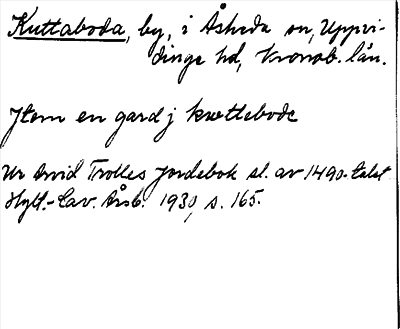 Kuttaboda, by, i Åsheda sn, Uppvi-
dinge hd, Kronob. län.
Jtem en gard j kwttebode
Ur Arvid Trolles Jordebok sl. av 1490-talet
Hylt.-Cav. Årsb. 1930, s. 165.